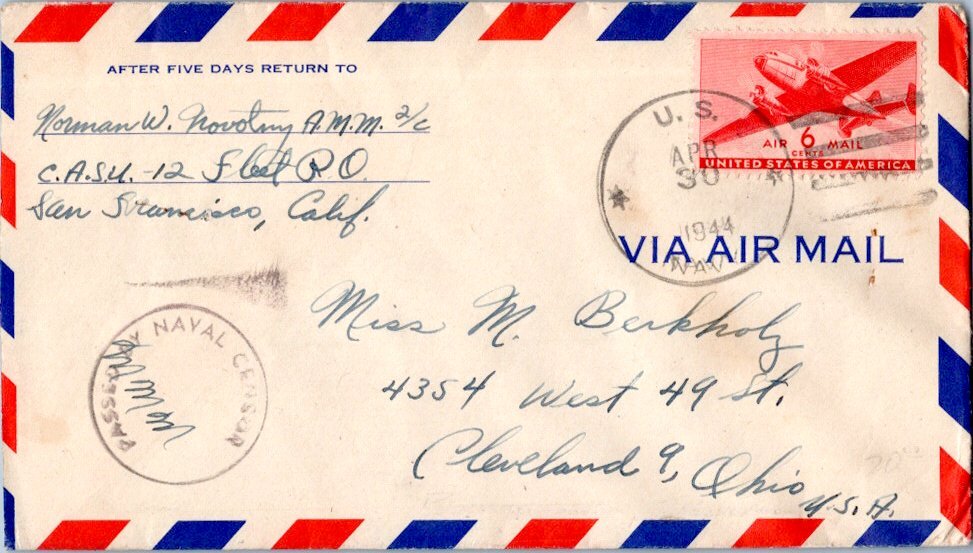 AFTER FIVE DAYS RETURN TO
Norman W. Novotny A.M.M. 2/c
C.A.S.U. -12 Fleet P.O.
San Francisco, Calif.
U. S.
APR
30
1944
NAVY
AIR 6 MAIL
CENTS
UNITED STATES OF AMERICA
VIA AIR MAIL
PASSED BY NAVAL CENSOR
Miss M. Berkholz
4354 West 49 St.
Cleveland 9, Ohio
U.S.A.